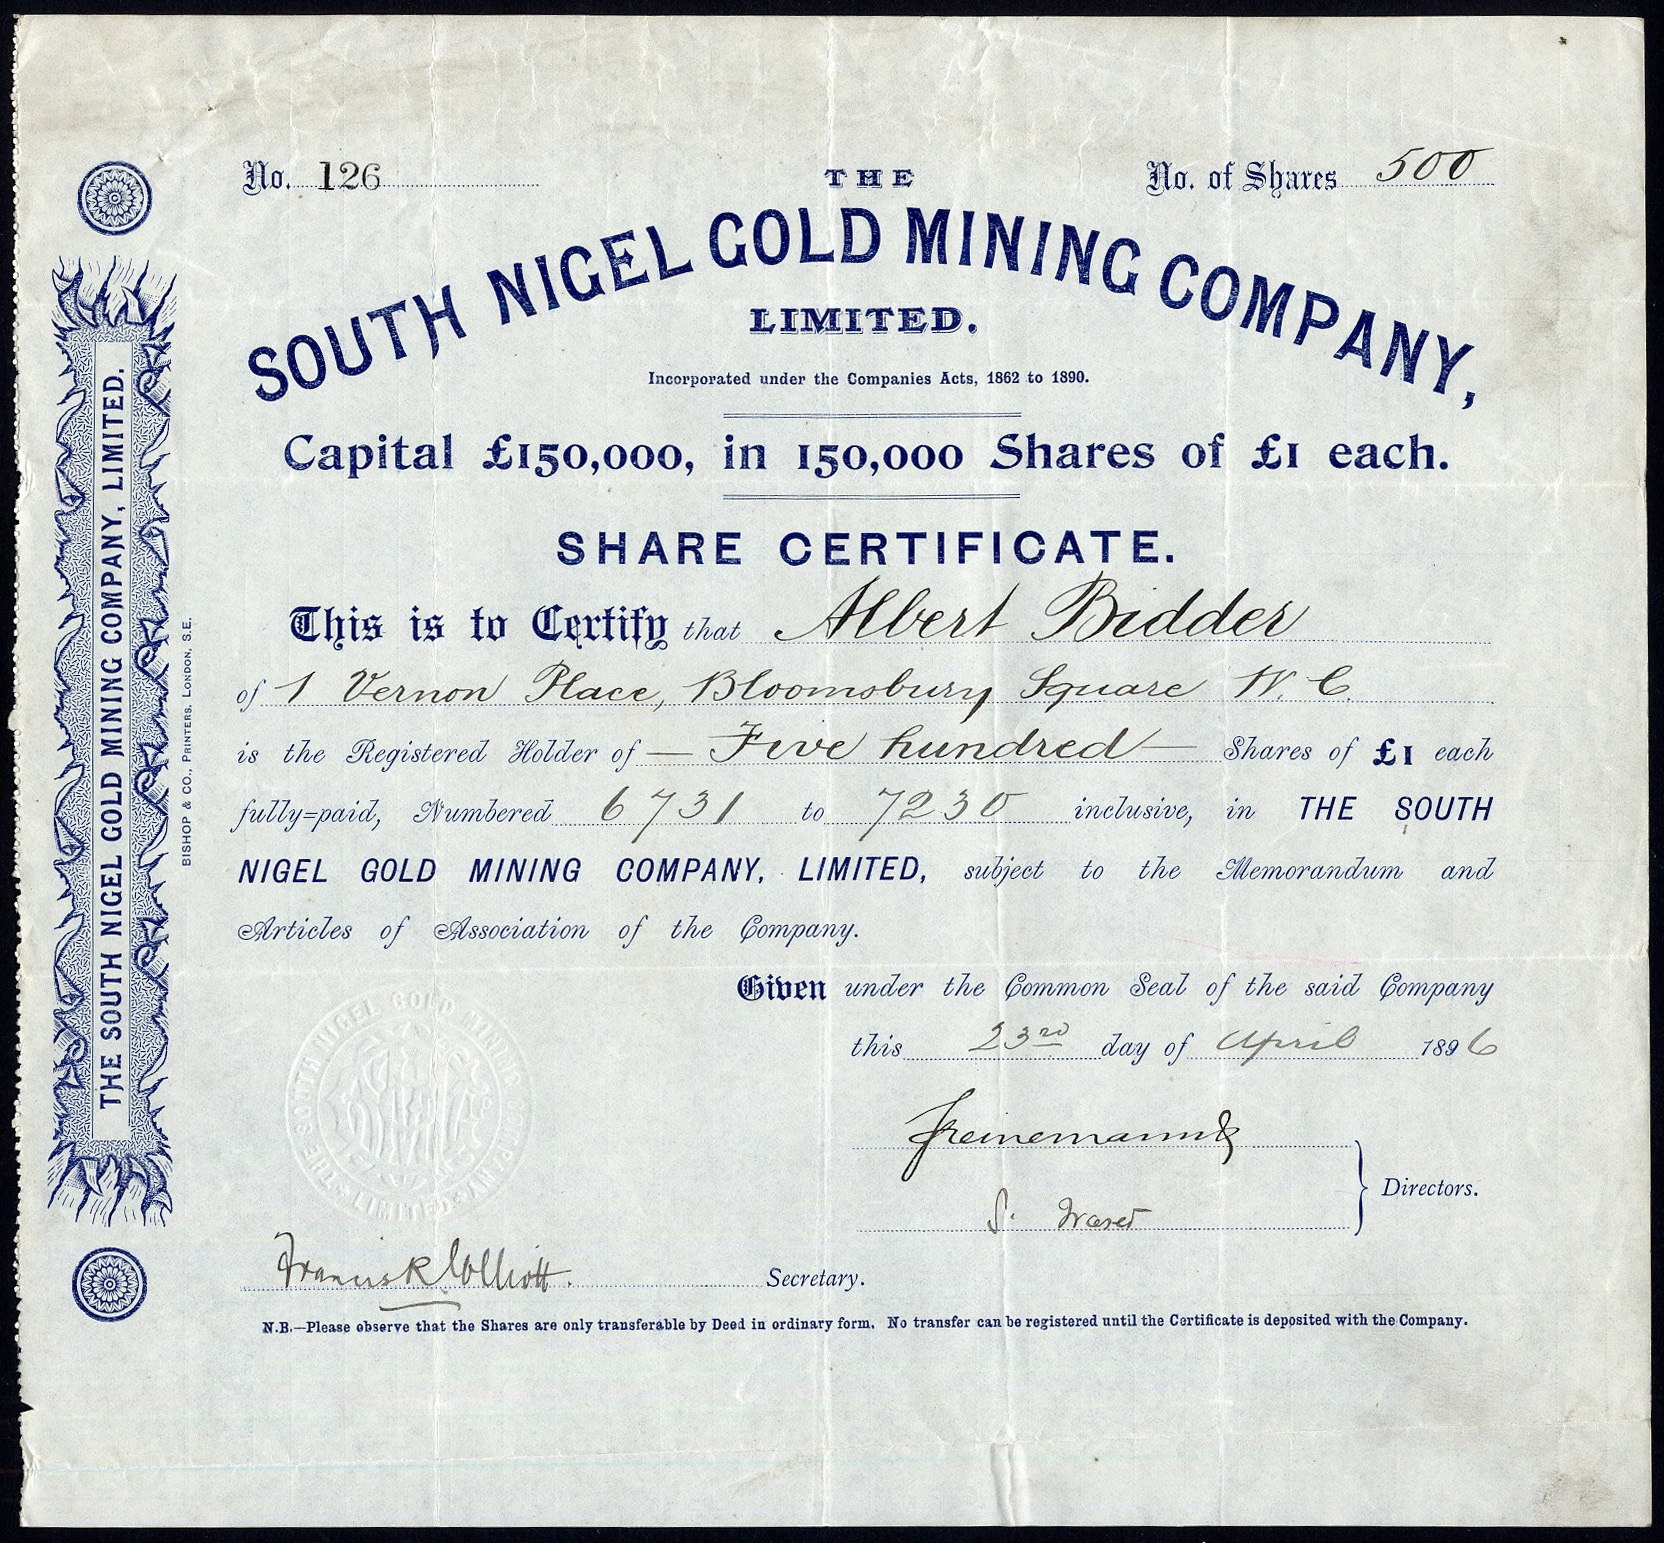 No. 126
THE
No. of Shares 500
SOUTH NIGEL GOLD MINING COMPANY,
LIMITED.
Incorporated under the Companies Acts, 1862 to 1890.
Capital £150,000, in 150,000 Shares of £1 each.
SHARE CERTIFICATE.
This is to Certify that Albert Bidder
of 1 Vernon Place, Bloomsbury Square W. C.
is the Registered Holder of — Five hundred — Shares of £1 each
fully=paid, Numbered 6731 to 7230 inclusive, in THE SOUTH
NIGEL GOLD MINING COMPANY, LIMITED, subject to the Memorandum and
Articles of Association of the Company.
Given under the Common Seal of the said Company
this 23rd day of April 1896
Directors.
Francis R
Secretary.
N.B.—Please observe that the Shares are only transferable by Deed in ordinary form. No transfer can be registered until the Certificate is deposited with the Company.
THE SOUTH NIGEL GOLD MINING COMPANY, LIMITED.
BISHOP & CO., PRINTERS, LONDON, S.E.
THE SOUTH NIGEL GOLD MINING COMPANY LIMITED